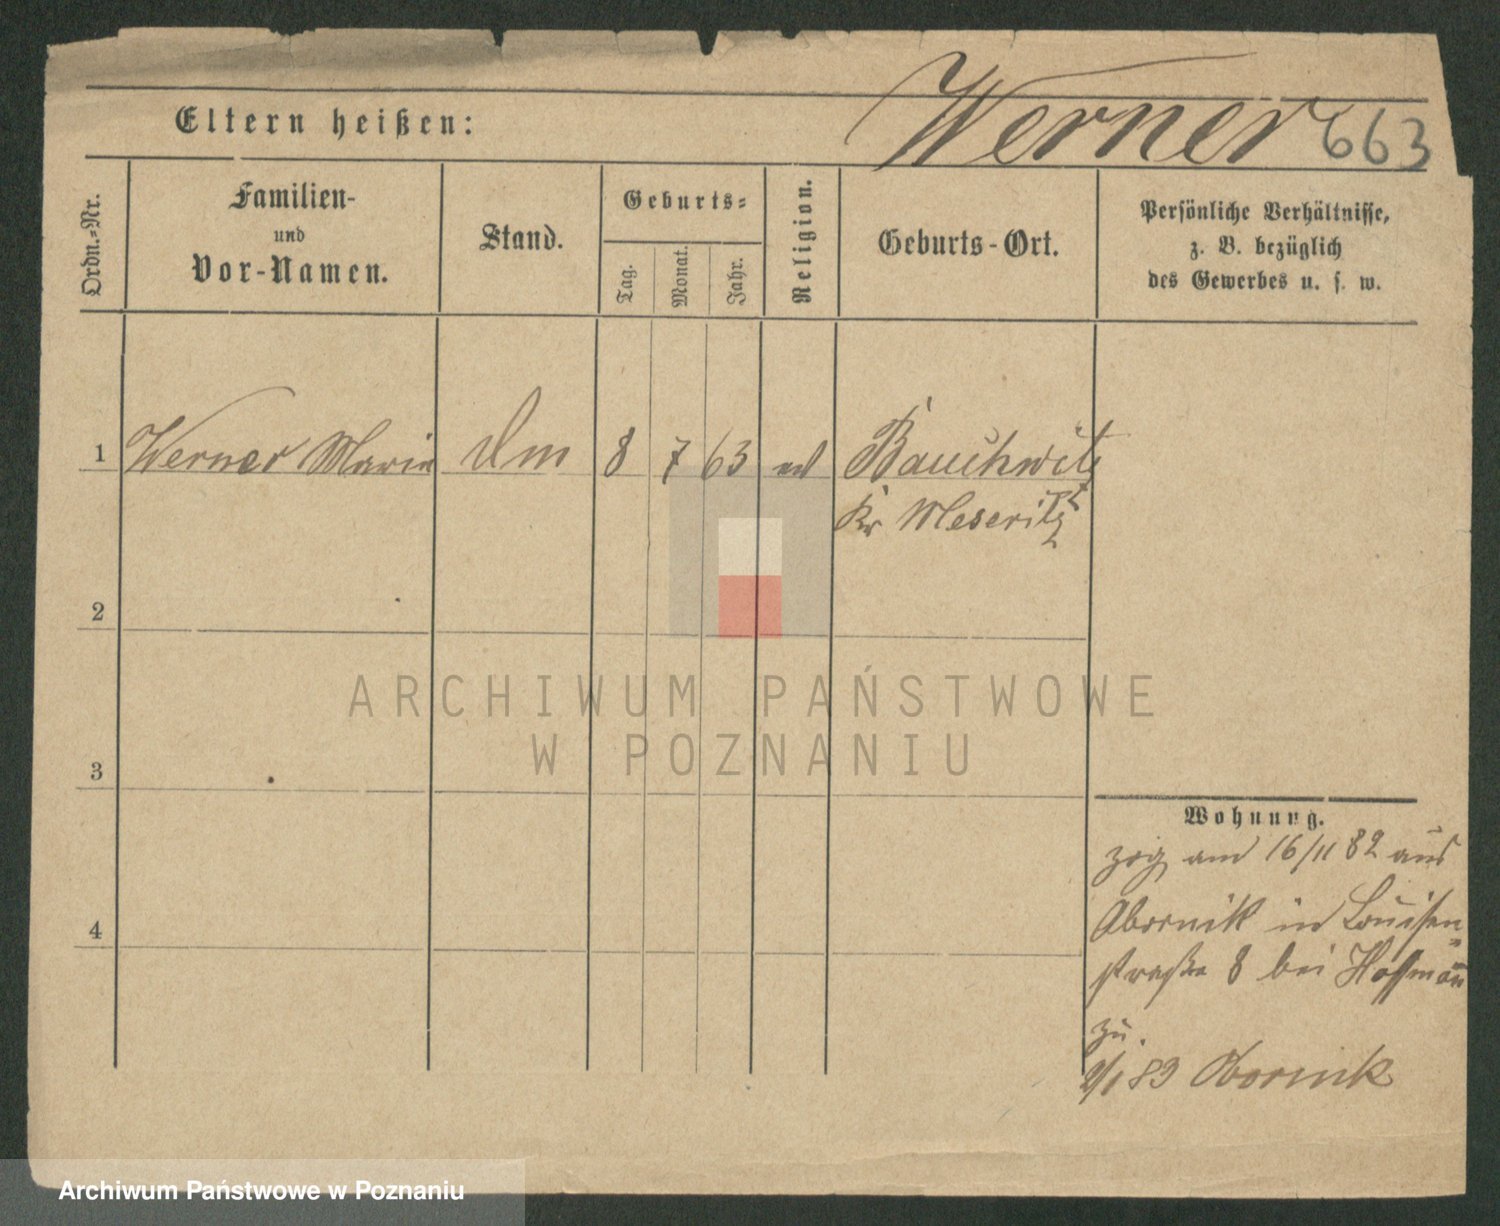 Werner 663
Eltern heißen:
Ordn.-Nr.
Familien-
und
Vor-Namen.
Stand.
Geburts-
Tag.
Monat.
Jahr.
Religion.
Geburts-Ort.
Persönliche Verhältnisse,
z. B. bezüglich
des Gewerbes u. s. w.
1 Werner Marie Dm 8 7 63 Bauchwitz
Kr Meseritz
2
3
4
ARCHIWUM PAŃSTWOWE
W POZNANIU
Wohnung.
zog am 16/11 82 aus
Obornik in Louisen-
straße 8 bei Hoffmann
zu.
2/1 83 Obornik
Archiwum Państwowe w Poznaniu